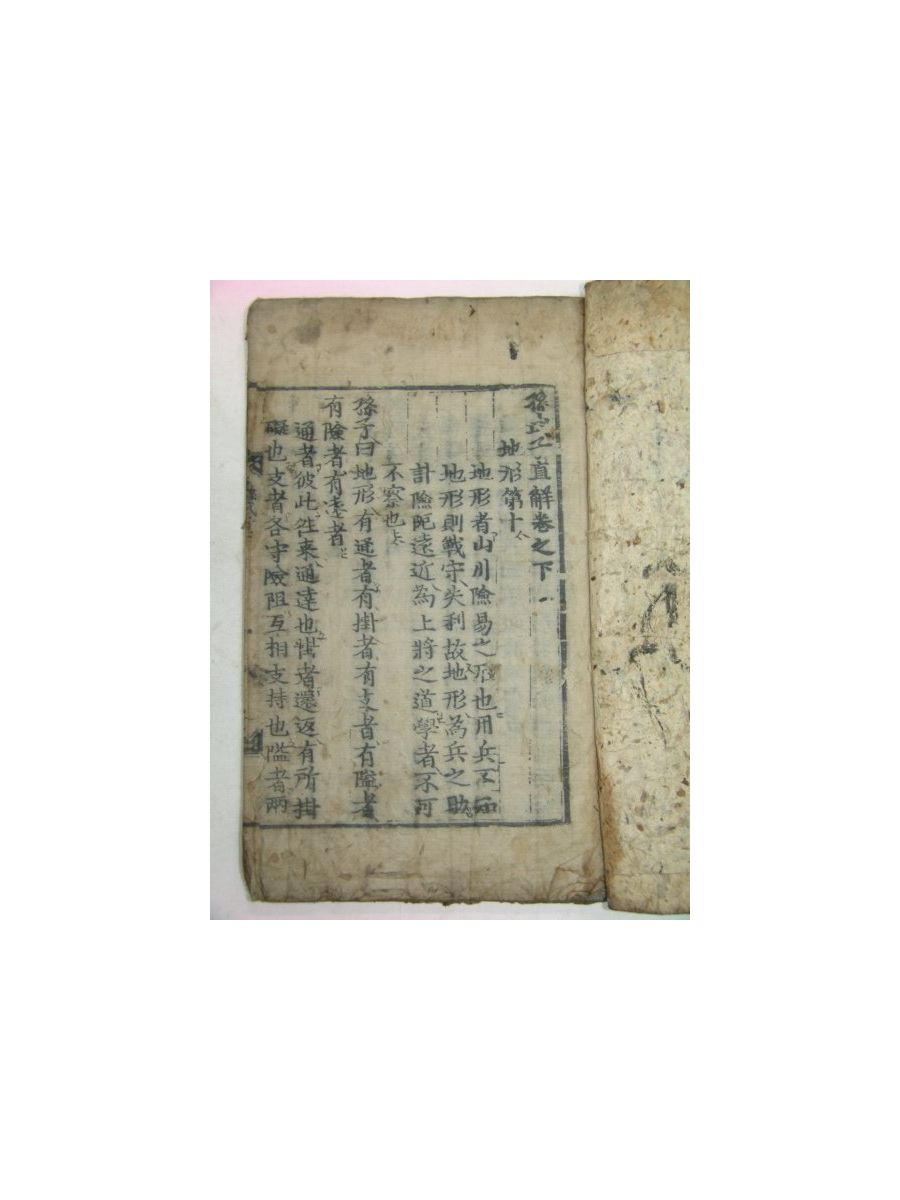 孫武子直解卷之下
地形第十
地形者山川險易之形也用兵不知
地形則戰守失利故地形為兵之助
計險阨遠近為上將之道學者不可
不察也
孫子曰地形有通者有掛者有支者有隘者
有險者有遠者
通者彼此往来通達也掛者還返有所掛
礙也支者各守險阻互相支持也隘者兩